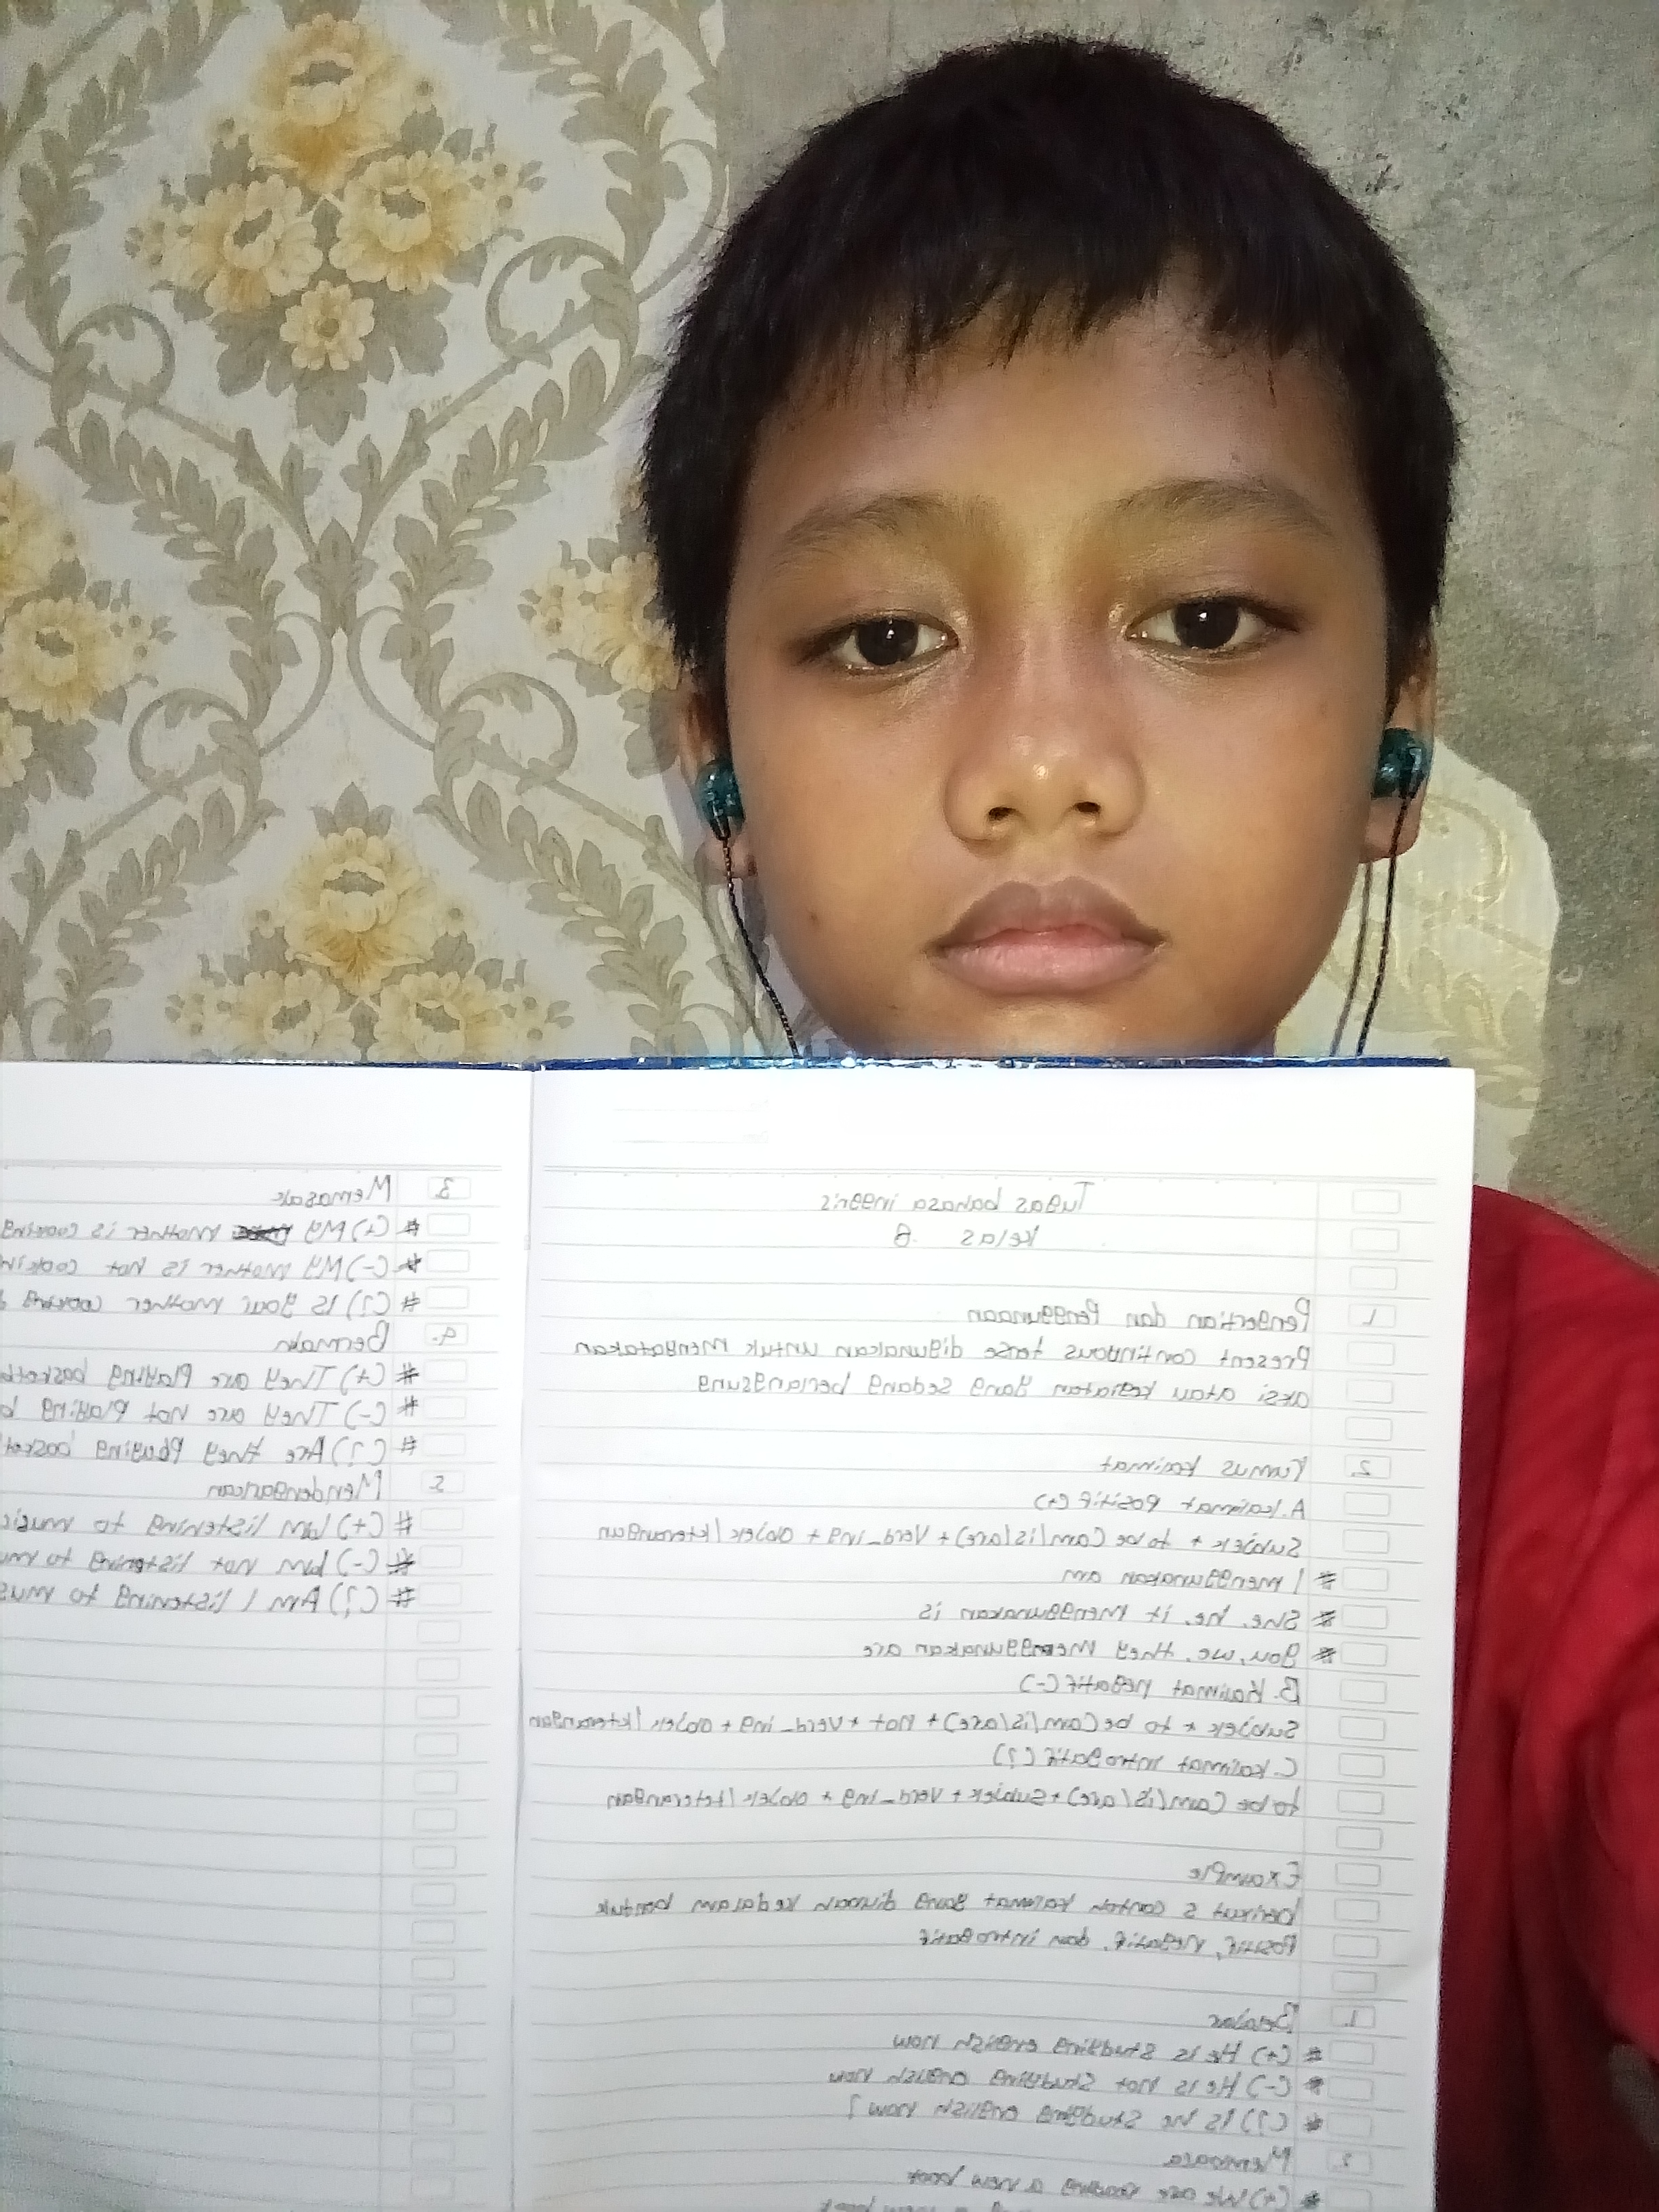 Tugas bahasa inggris
Kelas 8
1. Pengertian dan Penggunaan
Present continuous tense digunakan untuk Mengatakan
aksi atau kegiatan yang sedang berlangsung
2. Rumus kalimat
A. kalimat Positif (+)
Subjek + to be (am/is/are) + Verd_ing + objek/kterangan
# I menggunakan am
# She, he, it menggunakan is
# you, we, they menggunakan are
B. Kalimat negatif (-)
Subjek + to be (am/is/are) + not + verd_ing + objek/kterangan
C. kalimat introgatif (?)
to be (am/is/are) + subjek + verd_ing + objek/keterangan
Example
berikut 5 contoh kalimat yang diubah kedalam bentuk
Positif, negatif, dan introgatif
1. Belajar
# (+) He is studying english now
# (-) He is not studying english now
# (?) Is he studying english now?
2. Membaca
# (+) We are reading a new book
a new book
3. Memasak
# (+) My mother is cooking
# (-) My mother is not cookin
# (?) Is your mother cooking
4. Bermain
# (+) They are Playing basketb
# (-) They are not Playing b
# (?) Are they Playing basket
5. Mendengarkan
# (+) I am listening to music
# (-) I am not listening to mu
# (?) Am I listening to mus